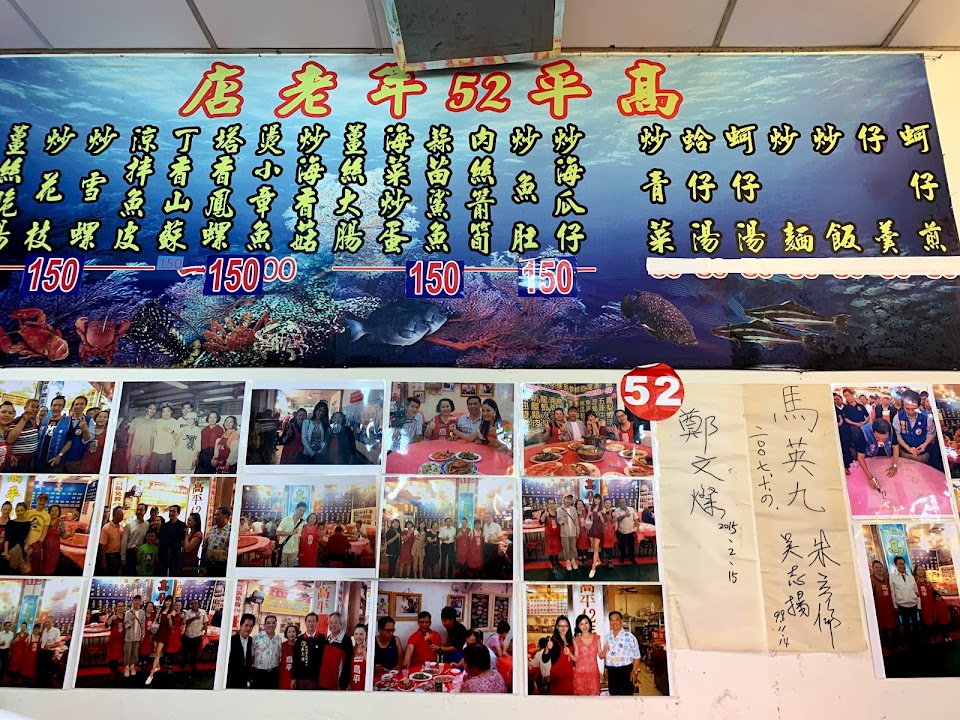 高平52年老店
蚵仔煎
仔羹
炒飯
炒麵
蚵仔湯
蛤仔湯
炒青菜
炒海瓜仔
炒魚肚
肉絲箭筍
蒜苗鯊魚
海菜炒蛋
薑絲大腸
炒海香菇
燙小章魚
塔香鳳螺
丁香山蘇
涼拌魚皮
炒雪螺
炒花枝
薑絲
150
150
150
150
150
52
鄭文燦
2015.2.15
馬英九
朱立倫
吳志揚
98.11.14